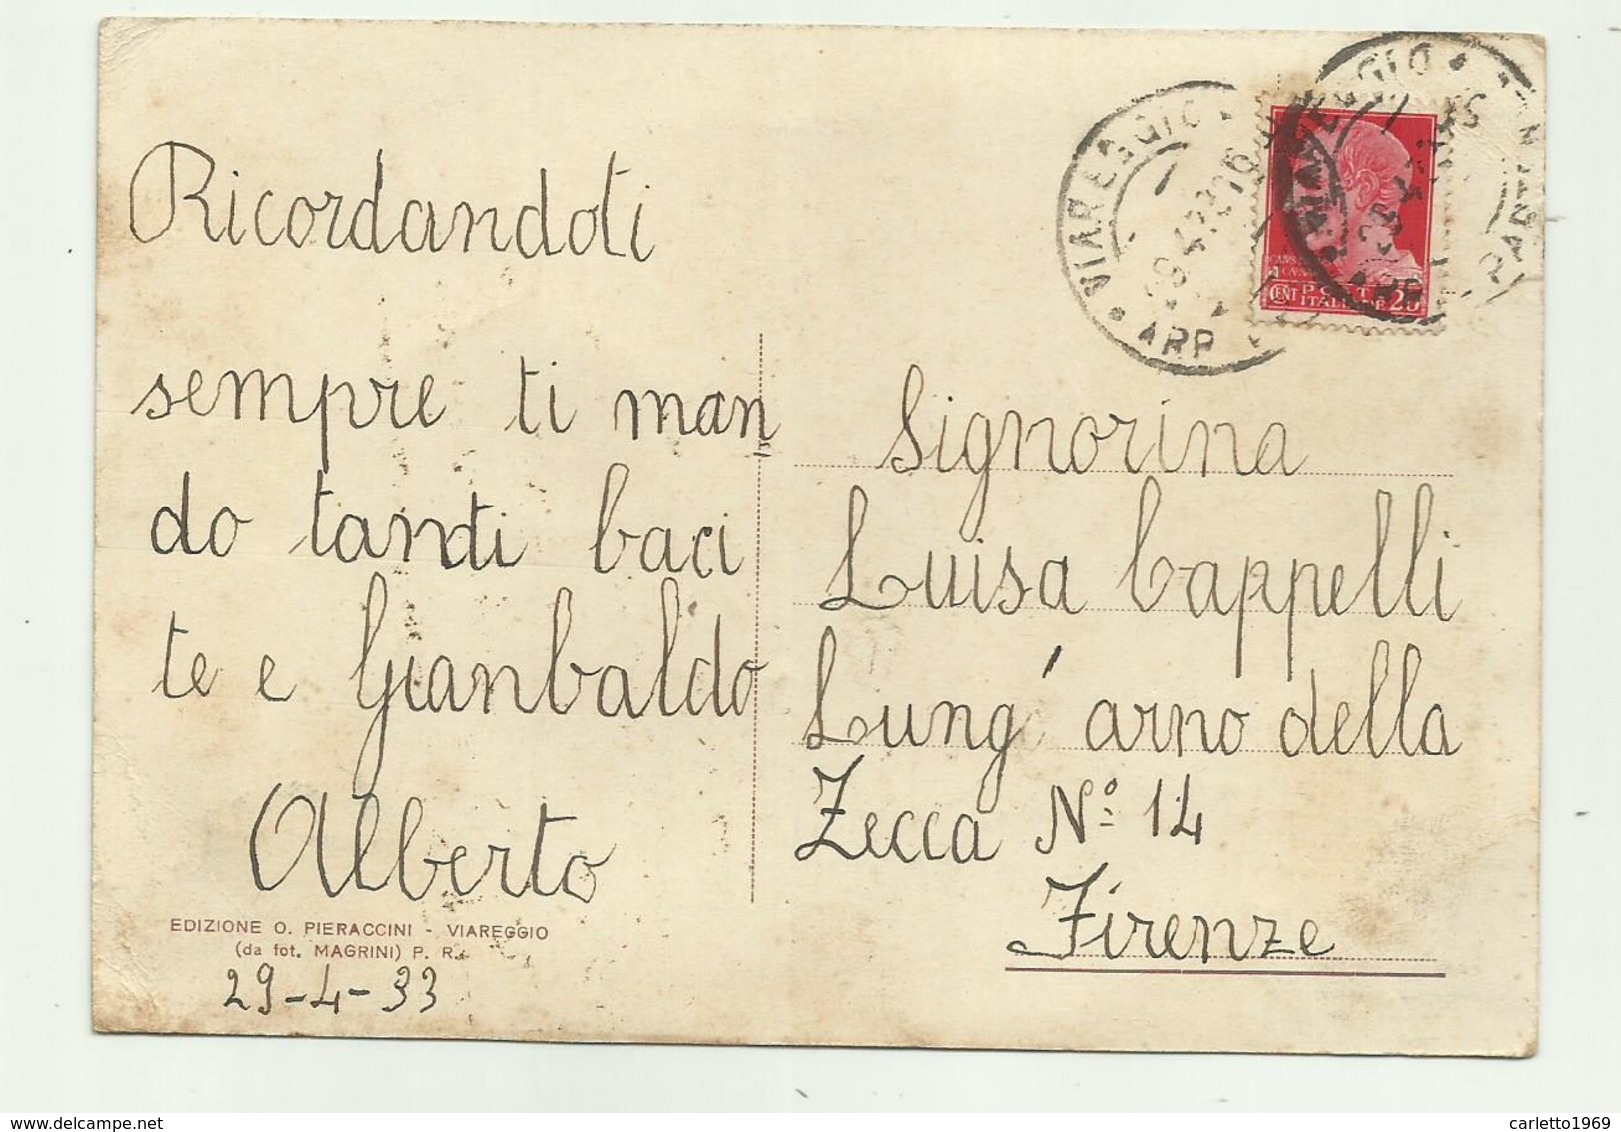 Ricordandoti
sempre ti man
do tanti baci
te e Gianbaldo
Alberto
EDIZIONE O. PIERACCINI - VIAREGGIO
(da fot. MAGRINI) P. R.
29-4-33
VIAREGGIO
ARR
VIAREGGIO
CENT POSTE 20
ITALIANE
Signorina
Luisa Cappelli
Lung' arno della
Zecca Nº 14
Firenze
delcampe.net
carletto1969